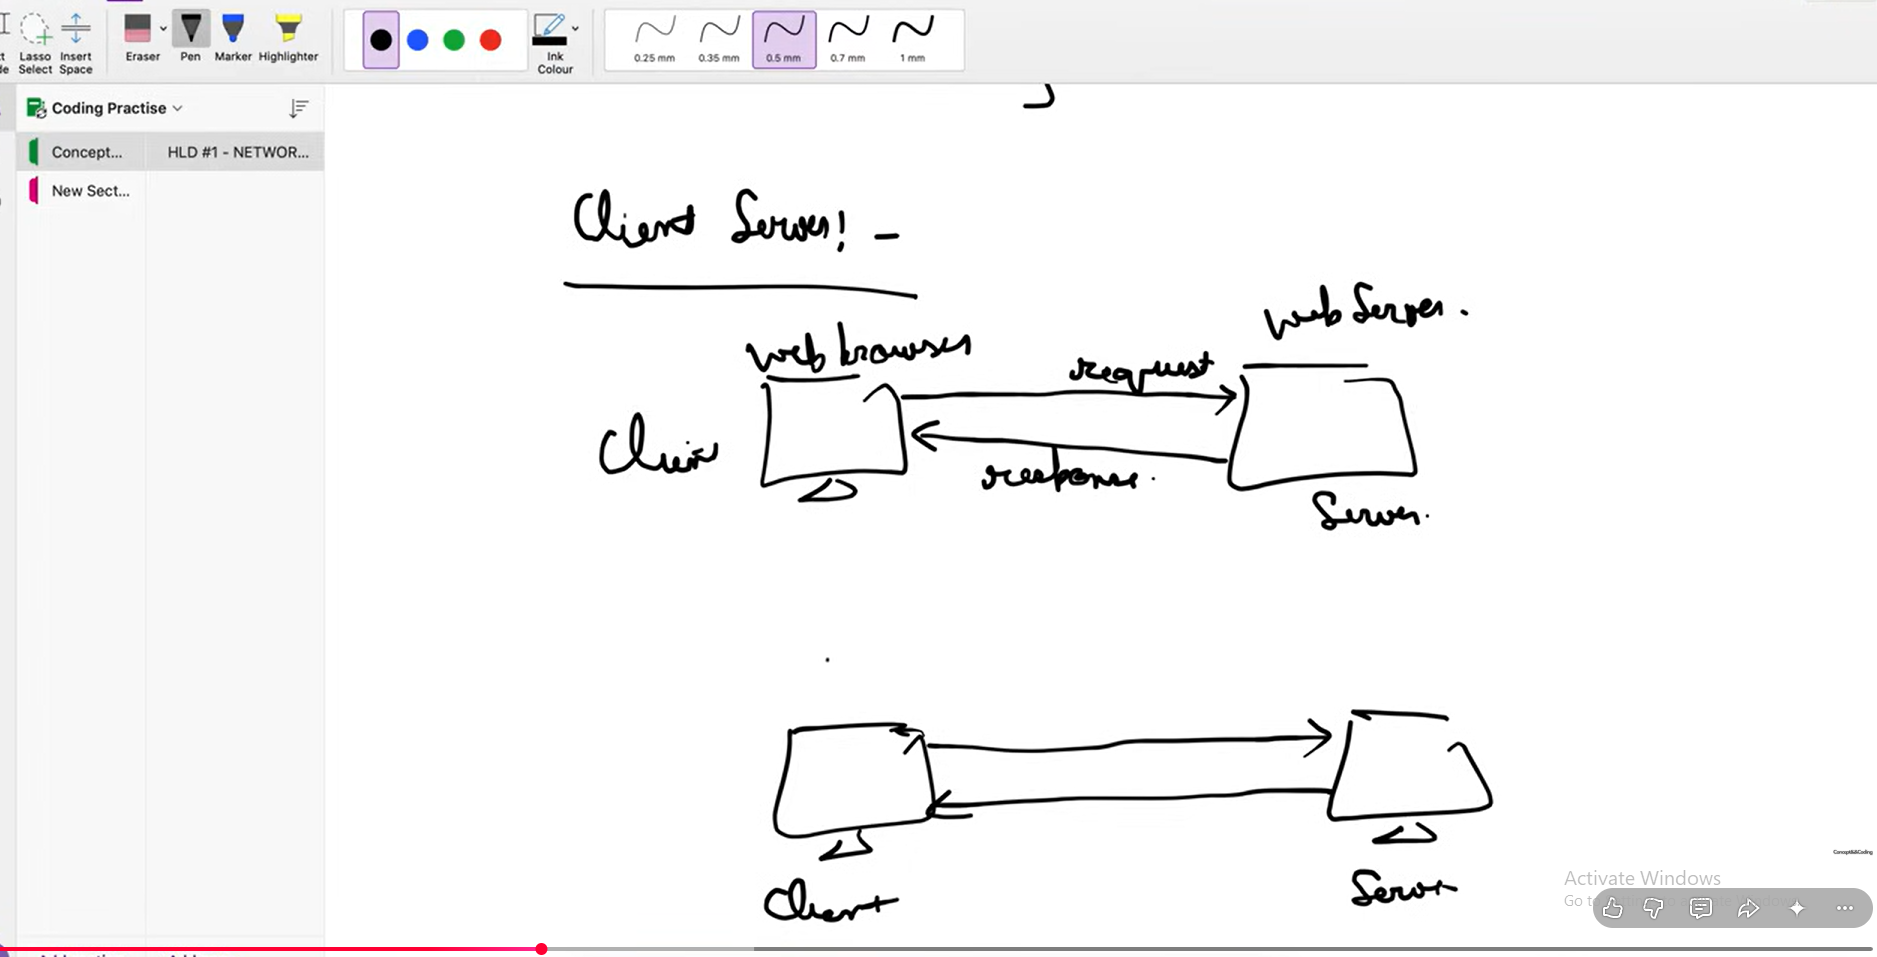 Lasso Select
Insert Space
Eraser
Pen
Marker
Highlighter
Ink Colour
0.25 mm
0.35 mm
0.5 mm
0.7 mm
1 mm
Coding Practise
Concept...
HLD #1 - NETWOR...
New Sect...
Client Server! -
web browser
web Server.
request
Client
response.
Server.
Client
Server
Concept&&Coding
Activate Windows